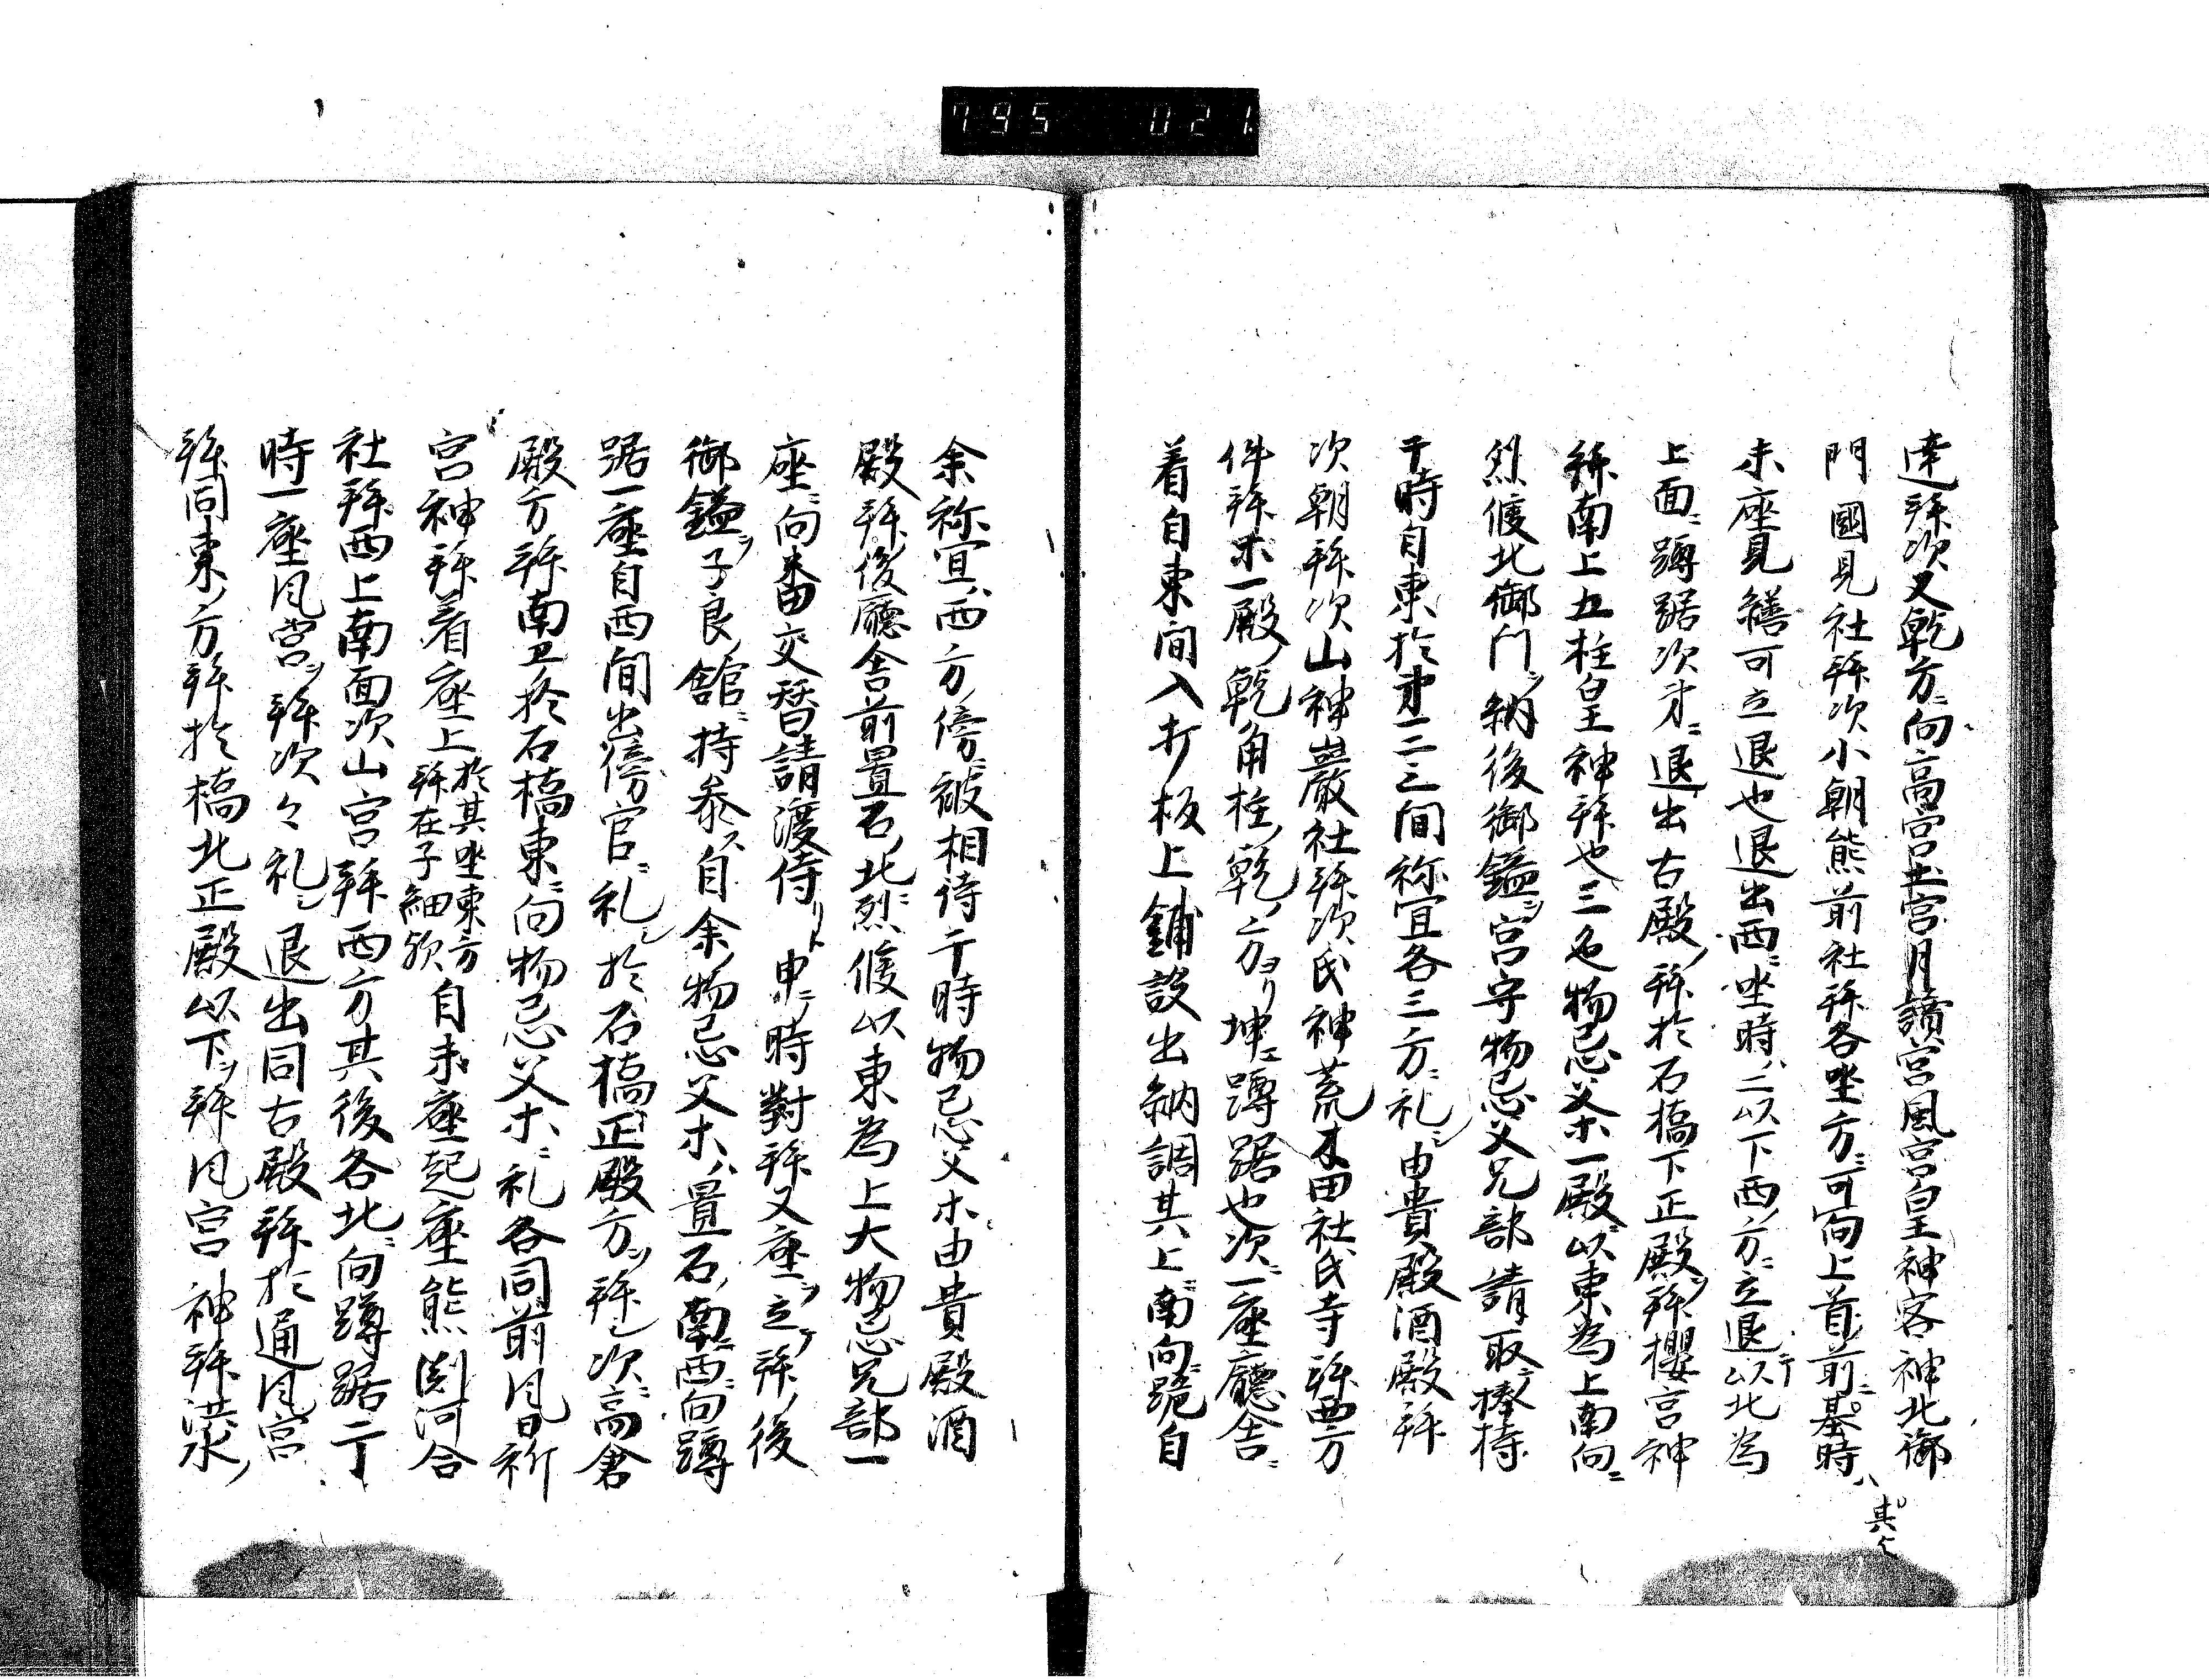 795 021
遠拜次又乾方ニ向高宮土宮月讀宮風宮皇神客神北御
門國見社拜次小朝熊前社拜各坐方ニ可向上首前ニ其時ハ其々
末座見繕可立退也退出西ニ坐時ハ二以下西ノ方ニ立退テ以北為
上面ニ蹲踞次才ニ退出古殿ノ拜於石橋下正殿ヲ拜櫻宮神
拜南上五柱皇神拜也三色物忌父木一殿ニ以東為上南向ニ
烈候北御門ヲ納後御鎰ヲ宮守物忌父兄部請取ニ捧持
干時自東於才一二三間祢宜各三方ニ礼シ由貴殿酒殿拜
次朝拜次山神巖社拜次氏神荒木田社氏寺拜西方
件拜木一殿ノ乾角柱ノ乾ノ方ヨリ坤ニ蹲踞也次ニ一座廳舎ニ
着自東間入打板上鋪設出納調其上ニ南向ニ跪自
余祢宜ハ西方傍ニ被相待干時物忌父木由貴殿酒
殿拜後廳舎前置石ノ北ニ烈候以東為上大物忌兄部一
座ニ向番交替請渡侍リト申ニ時對拜又座ヲ立テ拜ノ後
御鎰ヲ子良ノ舘ニ持參ス自余ノ物忌父木ハ置石ノ南ニ西ニ向蹲
踞一座自西間出傍官ニ礼シ於石橋正殿方ヲ拜シ次ニ高倉
殿方拜南上於石橋東ニ向物忌父木ニ礼各同前風日祈
宮神拜着座上於其坐東方拜在子細歟自末座起座熊渕河合
社拜西上南面次山宮拜西方其後各北ニ向蹲踞二丁
時一座風宮ヲ拜次々礼シ退出同古殿拜於通風宮
拜同東ノ方拜於橋北正殿以下ヲ拜風宮神拜洪水ノ